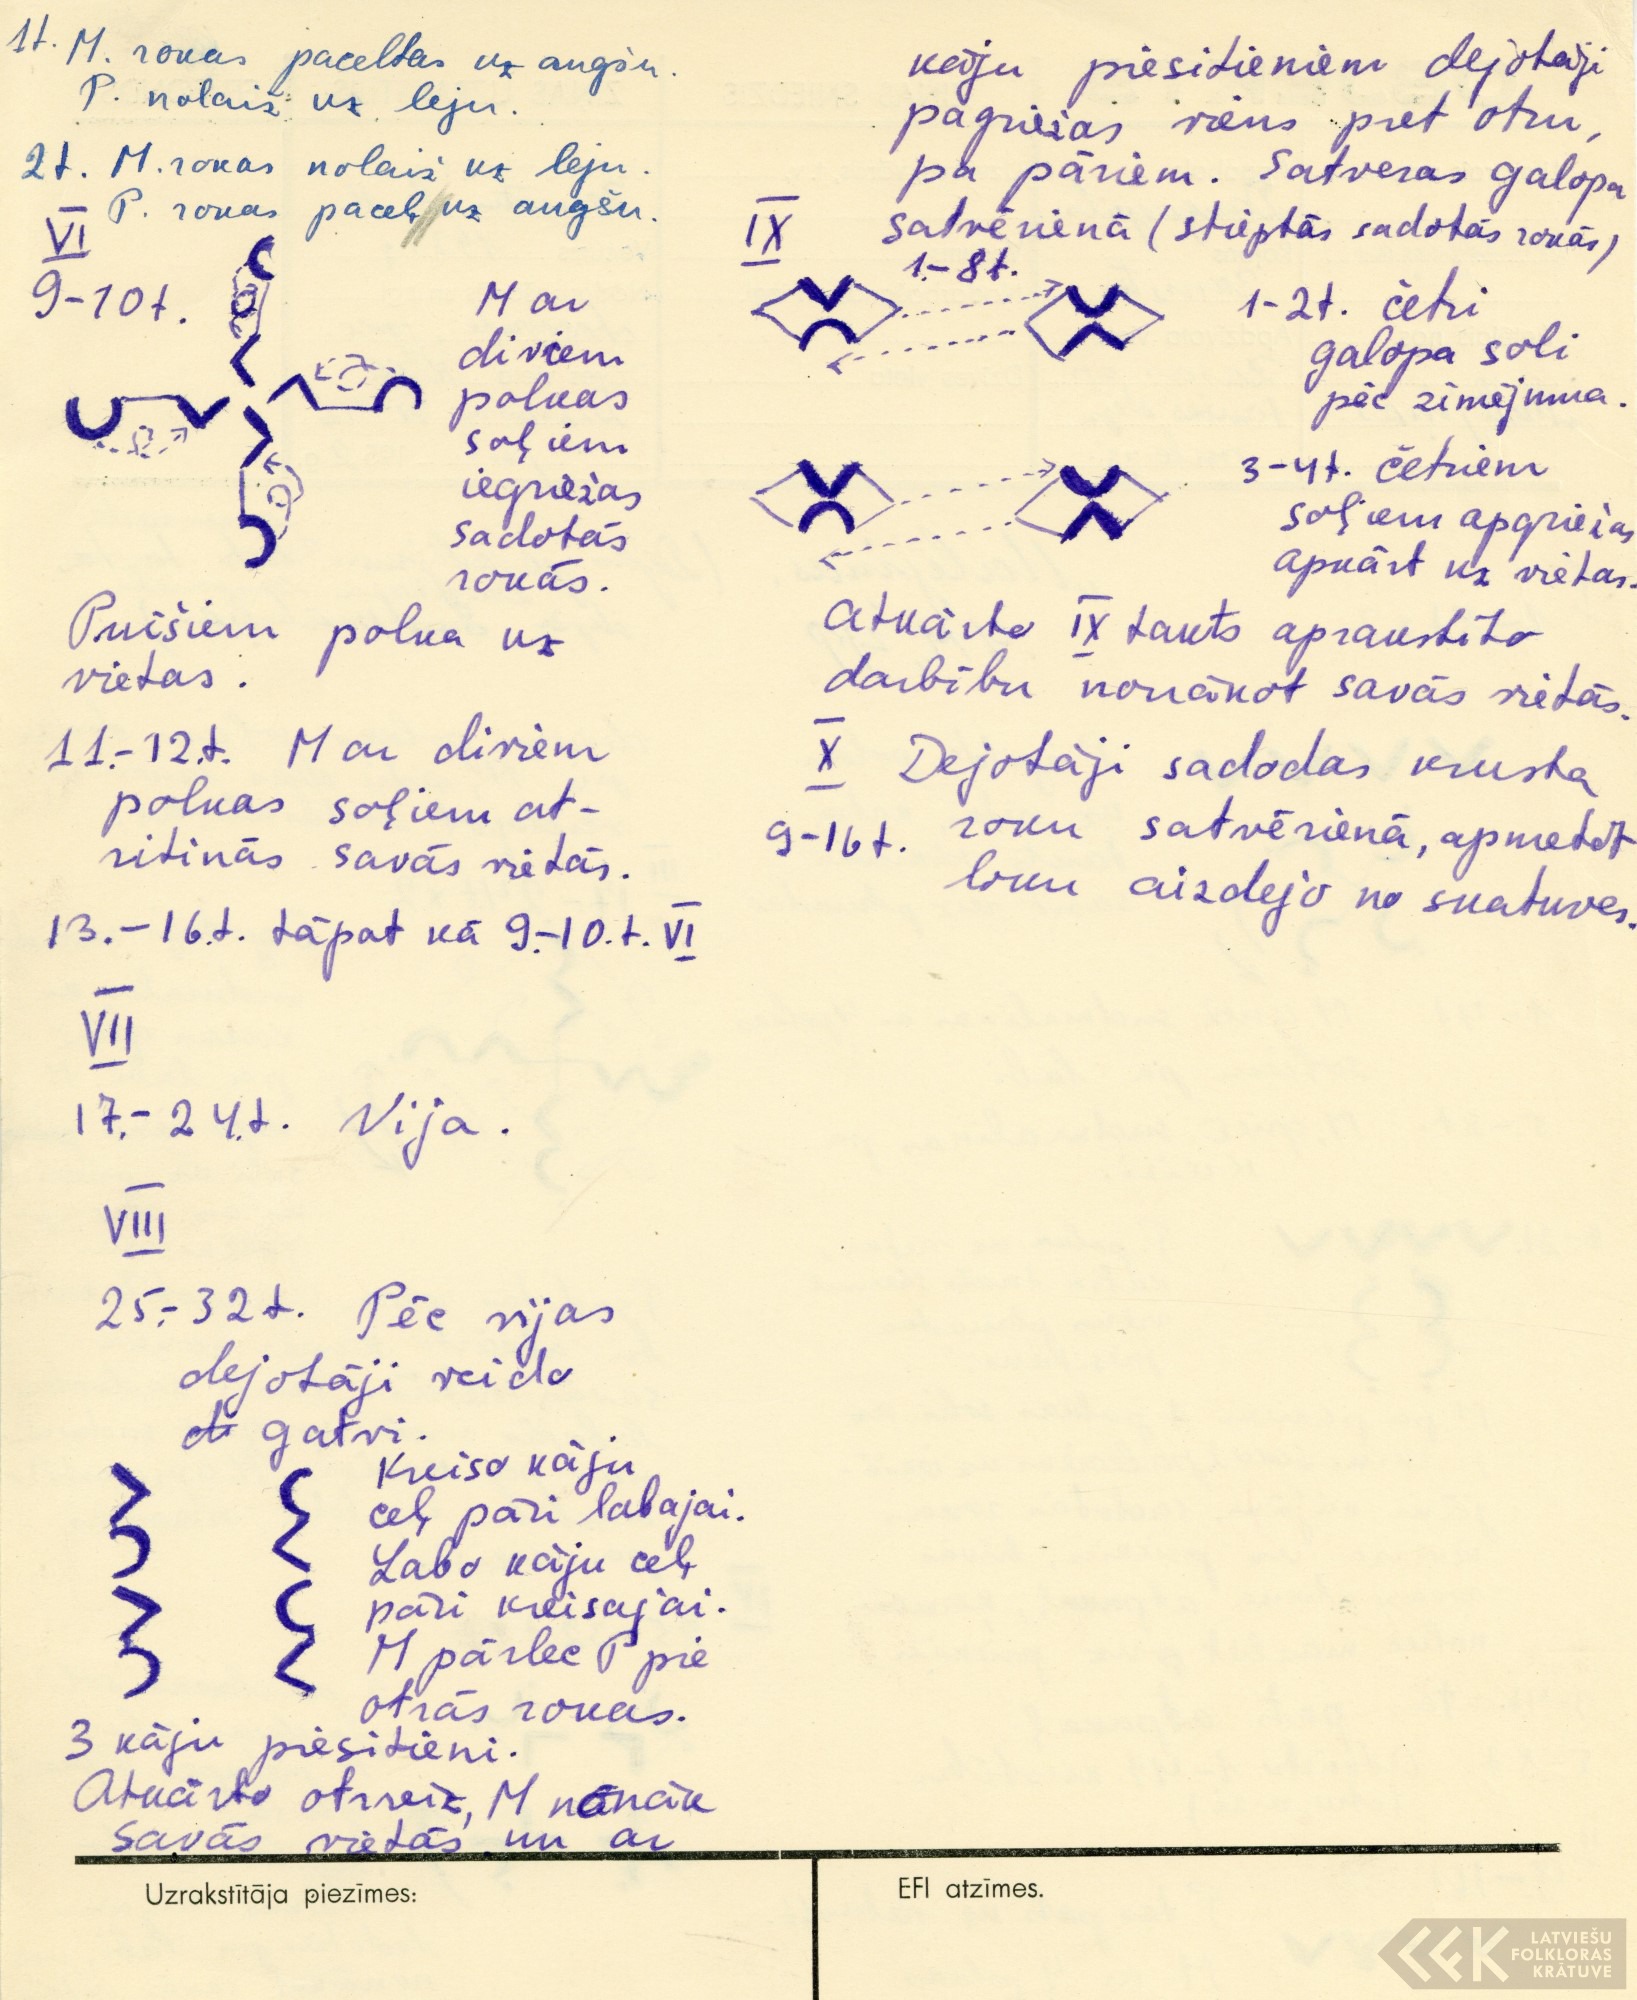 1t. M. rokas paceltas uz augšu.
P. nolaiž uz leju.
2t. M. rokas nolaiž uz leju.
P. rokas paceļ uz augšu.
VI
9-10t.
M ar
diviem
polkas
soļiem
iegriežas
sadotās
rokās.
Puišiem polka uz
vietas.
11.-12.t. M ar diviem
polkas soļiem at-
ritinās savās vietās.
13.-16.t. tāpat kā 9.-10.t. VI
VII
17.-24.t. Vija.
VIII
25.-32t. Pēc vijas
dejotāji veido
gatvi.
Kreiso kāju
ceļ pāri labajai.
Labo kāju ceļ
pāri kreisajai.
M pārlec P pie
otrās rokas.
3 kāju piesitieni.
Atkārto otrreiz, M nonāk
savās vietās un ar
kāju piesitieniem dejotāji
pagriežas viens pret otru,
pa pāriem. Satveras galopa
IX satvērienā (stieptās sadotās rokās)
1.-8t.
1-2t. četri
galopa soli
pēc zīmējuma.
3-4t. četriem
soļiem apgriežas
apkārt uz vietas.
Atkārto IX takts aprakstīto
darbību nonākot savās vietās.
X Dejotāji sadodas krusta
9-16t. roku satvērienā, apmetot
loku aizdejo no skatuves.
Uzrakstītāja piezīmes:
EFI atzīmes.
LATVIEŠU
FOLKLORAS
KRĀTUVE